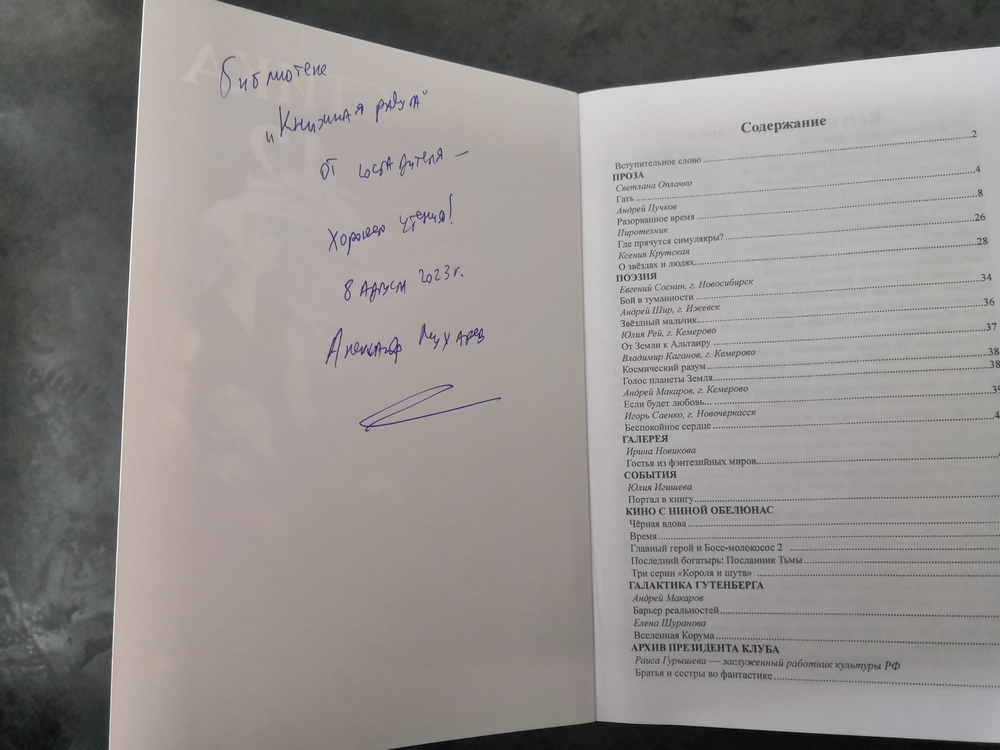 библиотеке
"Книжная радуга"
от составителя —
Хорошего чтения!
8 августа 2023 г.
Александр
Содержание
Вступительное слово 2
ПРОЗА
Светлана Оплачко
Гать 4
Андрей Пучков
Разорванное время 8
Пиротехник
Где прячутся симулякры? 26
Ксения Крутская
О звёздах и людях 28
ПОЭЗИЯ
Евгений Соснин, г. Новосибирск
Бой в туманности 34
Андрей Шир, г. Ижевск
Звёздный мальчик 36
Юлия Рей, г. Кемерово
От Земли к Альтаиру 37
Владимир Каганов, г. Кемерово
Космический разум 38
Голос планеты Земля 38
Андрей Макаров, г. Кемерово
Если будет любовь...
Игорь Саенко, г. Новочеркасск
Беспокойное сердце
ГАЛЕРЕЯ
Ирина Новикова
Гостья из фэнтезийных миров
СОБЫТИЯ
Юлия Игишева
Портал в книгу
КИНО С НИНОЙ ОБЕЛЮНАС
Чёрная вдова
Время
Главный герой и Босс-молокосос 2
Последний богатырь: Посланник Тьмы
Три серии «Короля и шута»
ГАЛАКТИКА ГУТЕНБЕРГА
Андрей Макаров
Барьер реальностей
Елена Шуранова
Вселенная Корума
АРХИВ ПРЕЗИДЕНТА КЛУБА
Раиса Гурышева — заслуженный работник культуры РФ
Братья и сестры во фантастике